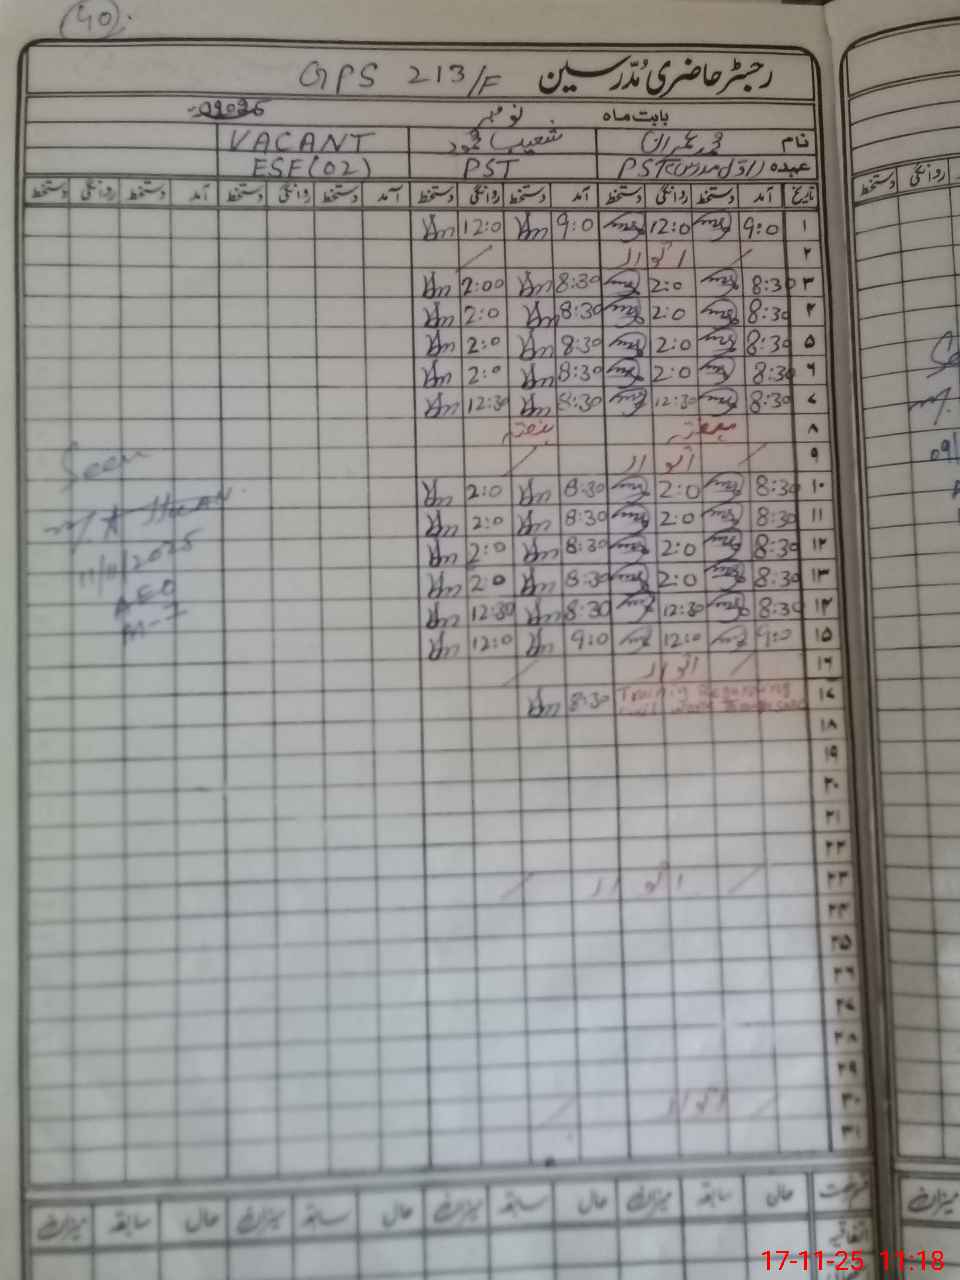 40
GPS 213/F رجسٹر حاضری مدرسین
بابت ماہ نومبر
نام محمد عمران شعیب محمود VACANT
عہدہ PST (اول مدرس) PST ESE(02)
تاریخ آمد دستخط روانگی دستخط آمد دستخط روانگی دستخط آمد دستخط روانگی دستخط آمد دستخط روانگی دستخط
۱ 9:0 12:0 9:0 12:0
۲ اتوار
۳ 8:30 2:0 8:30 2:00
۴ 8:30 2:0 8:30 2:0
۵ 8:30 2:0 8:30 2:0
۶ 8:30 2:0 8:30 2:0
۷ 8:30 12:30 8:30 12:30
۸ ہفتہ ہفتہ
۹ اتوار
۱۰ 8:30 2:0 8:30 2:0
۱۱ 8:30 2:0 8:30 2:0
۱۲ 8:30 2:0 8:30 2:0
۱۳ 8:30 2:0 8:30 2:0
۱۴ 8:30 12:30 8:30 12:30
۱۵ 9:0 12:0 9:0 12:0
۱۶ اتوار
۱۷ Training Regarding 8:30
۱۸
۱۹
۲۰
۲۱
۲۲
۲۳ اتوار
۲۴
۲۵
۲۶
۲۷
۲۸
۲۹
۳۰ اتوار
۳۱
Seen
11/11/2025
AEO
رخصت حال سابقہ میزان حال سابقہ میزان حال سابقہ میزان حال سابقہ میزان
اتفاقیہ
روانگی دستخط
میزان
17-11-25 11:18